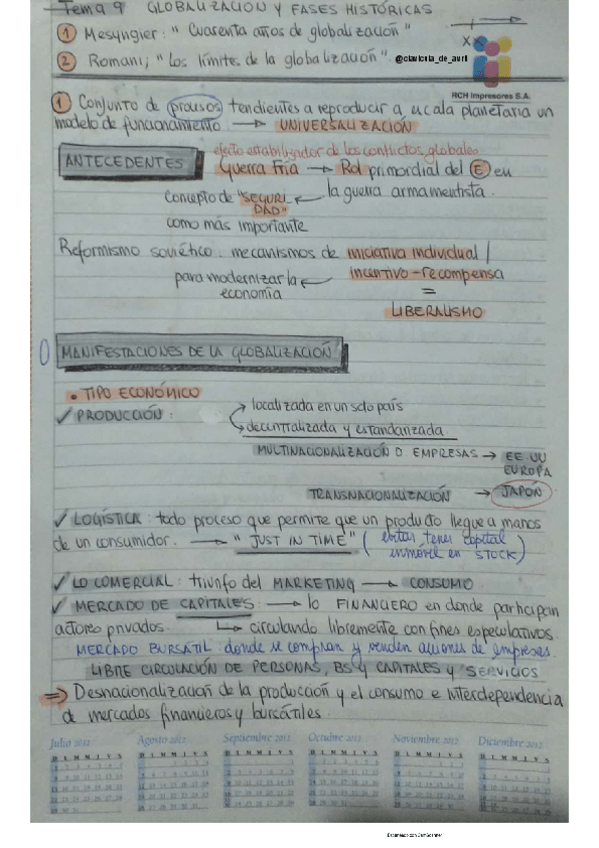 Tema 9 GLOBALIZACIÓN Y FASES HISTÓRICAS
① Mesyngier: "Cuarenta años de globalización"
② Romani; "Los límites de la globalización".
@clavicula_de_avril
RCH Impresores S.A.
① Conjunto de procesos tendientes a reproducir a escala planetaria un
modelo de funcionamiento → UNIVERSALIZACIÓN
efecto estabilizador de los conflictos globales
ANTECEDENTES Guerra Fría → Rol primordial del Ⓔ en
la guerra armamentista.
concepto de "SEGURI
DAD"
como más importante
Reformismo soviético: mecanismos de iniciativa individual /
para modernizar la incentivo-recompensa
economía =
LIBERALISMO
MANIFESTACIONES DE LA GLOBALIZACIÓN
• TIPO ECONÓMICO
✓ PRODUCCIÓN: localizada en un solo país
decentralizada y estandarizada
MULTINACIONALIZACIÓN D EMPRESAS → EE UU
EUROPA
TRANSNACIONALIZACIÓN → JAPÓN
✓ LOGÍSTICA: todo proceso que permite que un producto llegue a manos
de un consumidor. → "JUST IN TIME" (evitar tener capital
inmóvil en STOCK)
✓ LO COMERCIAL: triunfo del MARKETING → CONSUMO
✓ MERCADO DE CAPITALES: → lo FINANCIERO en donde participan
actores privados. ↳ circulando libremente con fines especulativos.
MERCADO BURSÁTIL: donde se compran y venden acciones de empresas.
LIBRE CIRCULACIÓN DE PERSONAS, BS Y CAPITALES Y SERVICIOS
⇒ Desnacionalización de la producción y el consumo e interdependencia
de mercados financieros y bursátiles.
Julio 2012 Agosto 2012 Septiembre 2012 Octubre 2012 Noviembre 2012 Diciembre 2012
D L M M J V S D L M M J V S D L M M J V S D L M M J V S D L M M J V S D L M M J V S
Escaneado con CamScanner